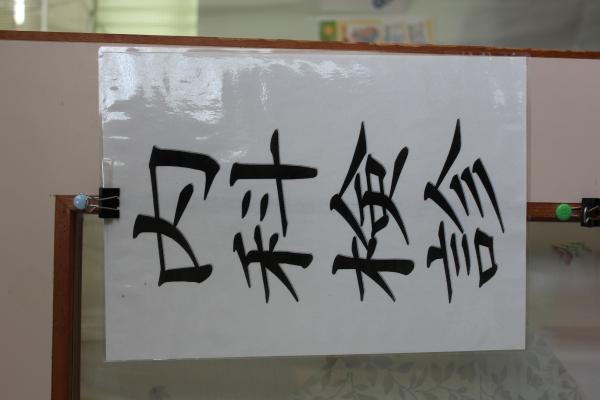 内科検診